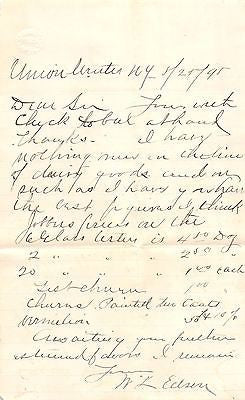 Union Center NY 5/25/95
Dear Sir Yours with
Check to bal at hand
Thanks. I have
nothing new in the line
of dairy goods and on
such as I have you have
the best figures I think
Jobbers prices on the
are 4.00 Doz
2 " " " 2.50 "
20 " " " 1.00 each
churn 1.00 "
Churns Painted two Coats
Vermilion 10%
Awaiting your further
esteemed favors I remain
Yours
W L Edson